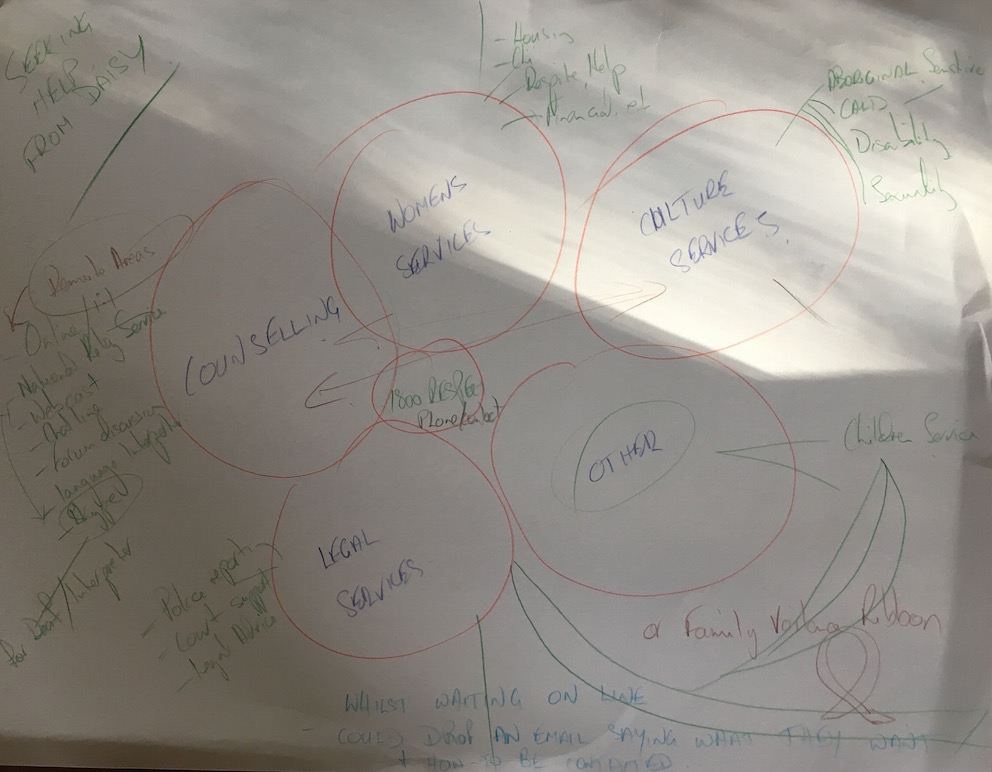 SEEKING
HELP
FROM DAISY
- Housing
-
Respite, Help
- Financial,
ABORIGINAL Sensitive
CALD
Disability
Sexuality
WOMENS
SERVICES
CULTURE
SERVICES.
COUNSELLING
Remote Areas
- Online
National Relay Service
- Webcast
- Chat line
- Forum discussion
- language Interpreter
- Skype
For Deaf / Interpreter
1800 RESPECT
Phone/contact
OTHER
Children Service
LEGAL
SERVICES
- Police report
- Court support
- legal Advice
or Family Voilance Ribbon
WHILST WAITING ON LINE
COULD DROP AN EMAIL SAYING WHAT THEY WANT
+ HOW TO BE CONTACTED.